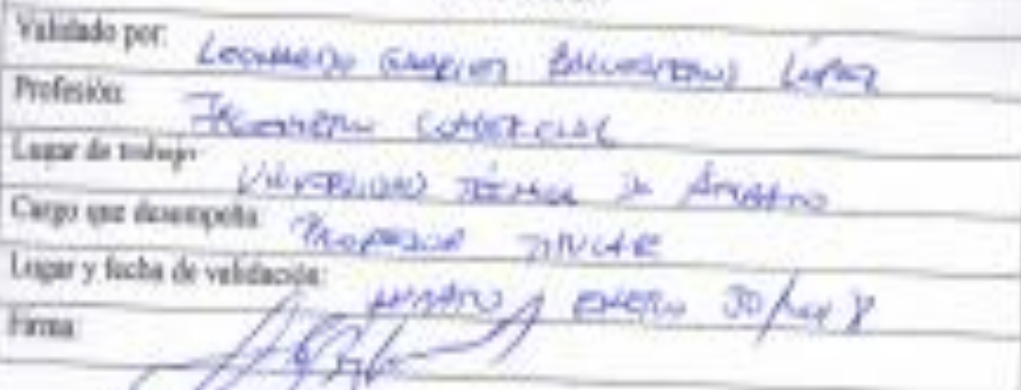 Validado por: Leonardo Gabriel Ballesteros López
Profesión: Ingeniero Comercial
Lugar de trabajo: Universidad Técnica de Ambato
Cargo que desempeña: Profesor Titular
Lugar y fecha de validación: Ambato / Enero 30/
Firma